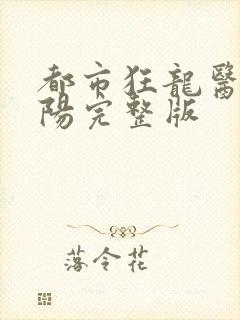 都市狂龍醫
陽完整版
落令花